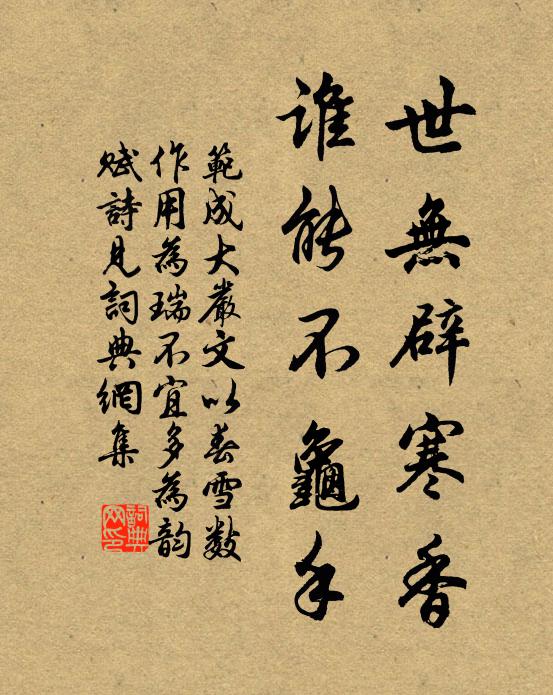 世無辟寒香
誰能不龜手
範成大嚴文以春雪數
作用為瑞不宜多為韵
賦詩見詞典網集
詞典
网印